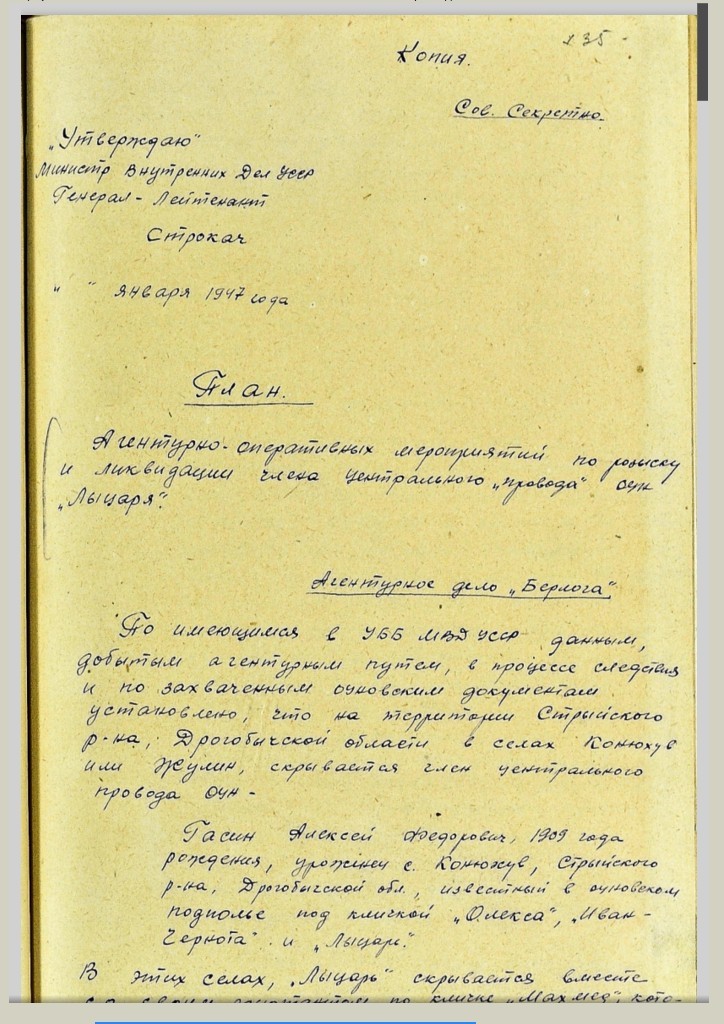 235
Копия.
Сов. Секретно.
„Утверждаю"
Министр Внутренних Дел УССР
Генерал-Лейтенант
Строкач
„ " января 1947 года
План.
Агентурно-оперативных мероприятий по розыску
и ликвидации члена центрального „провода" ОУН
„Лыцаря".
Агентурное дело „Берлога"
По имеющимся в УББ МВД УССР данным,
добытым агентурным путем, в процессе следствия
и по захваченным оуновским документам
установлено, что на территории Стрыйского
р-на, Дрогобычской области в селах Конюхув
или Жулин, скрывается член центрального
провода ОУН -
Гасин Алексей Федорович, 1909 года
рождения, урожинец с. Конюхув, Стрыйского
р-на, Дрогобычской обл., известный в оуновском
подполье под кличкой „Олекса", „Иван-
Чернота" и „Лыцарь".
В этих селах, „Лыцарь" скрывается вместе
со своим адъютантом по кличке „Махмед", кото-